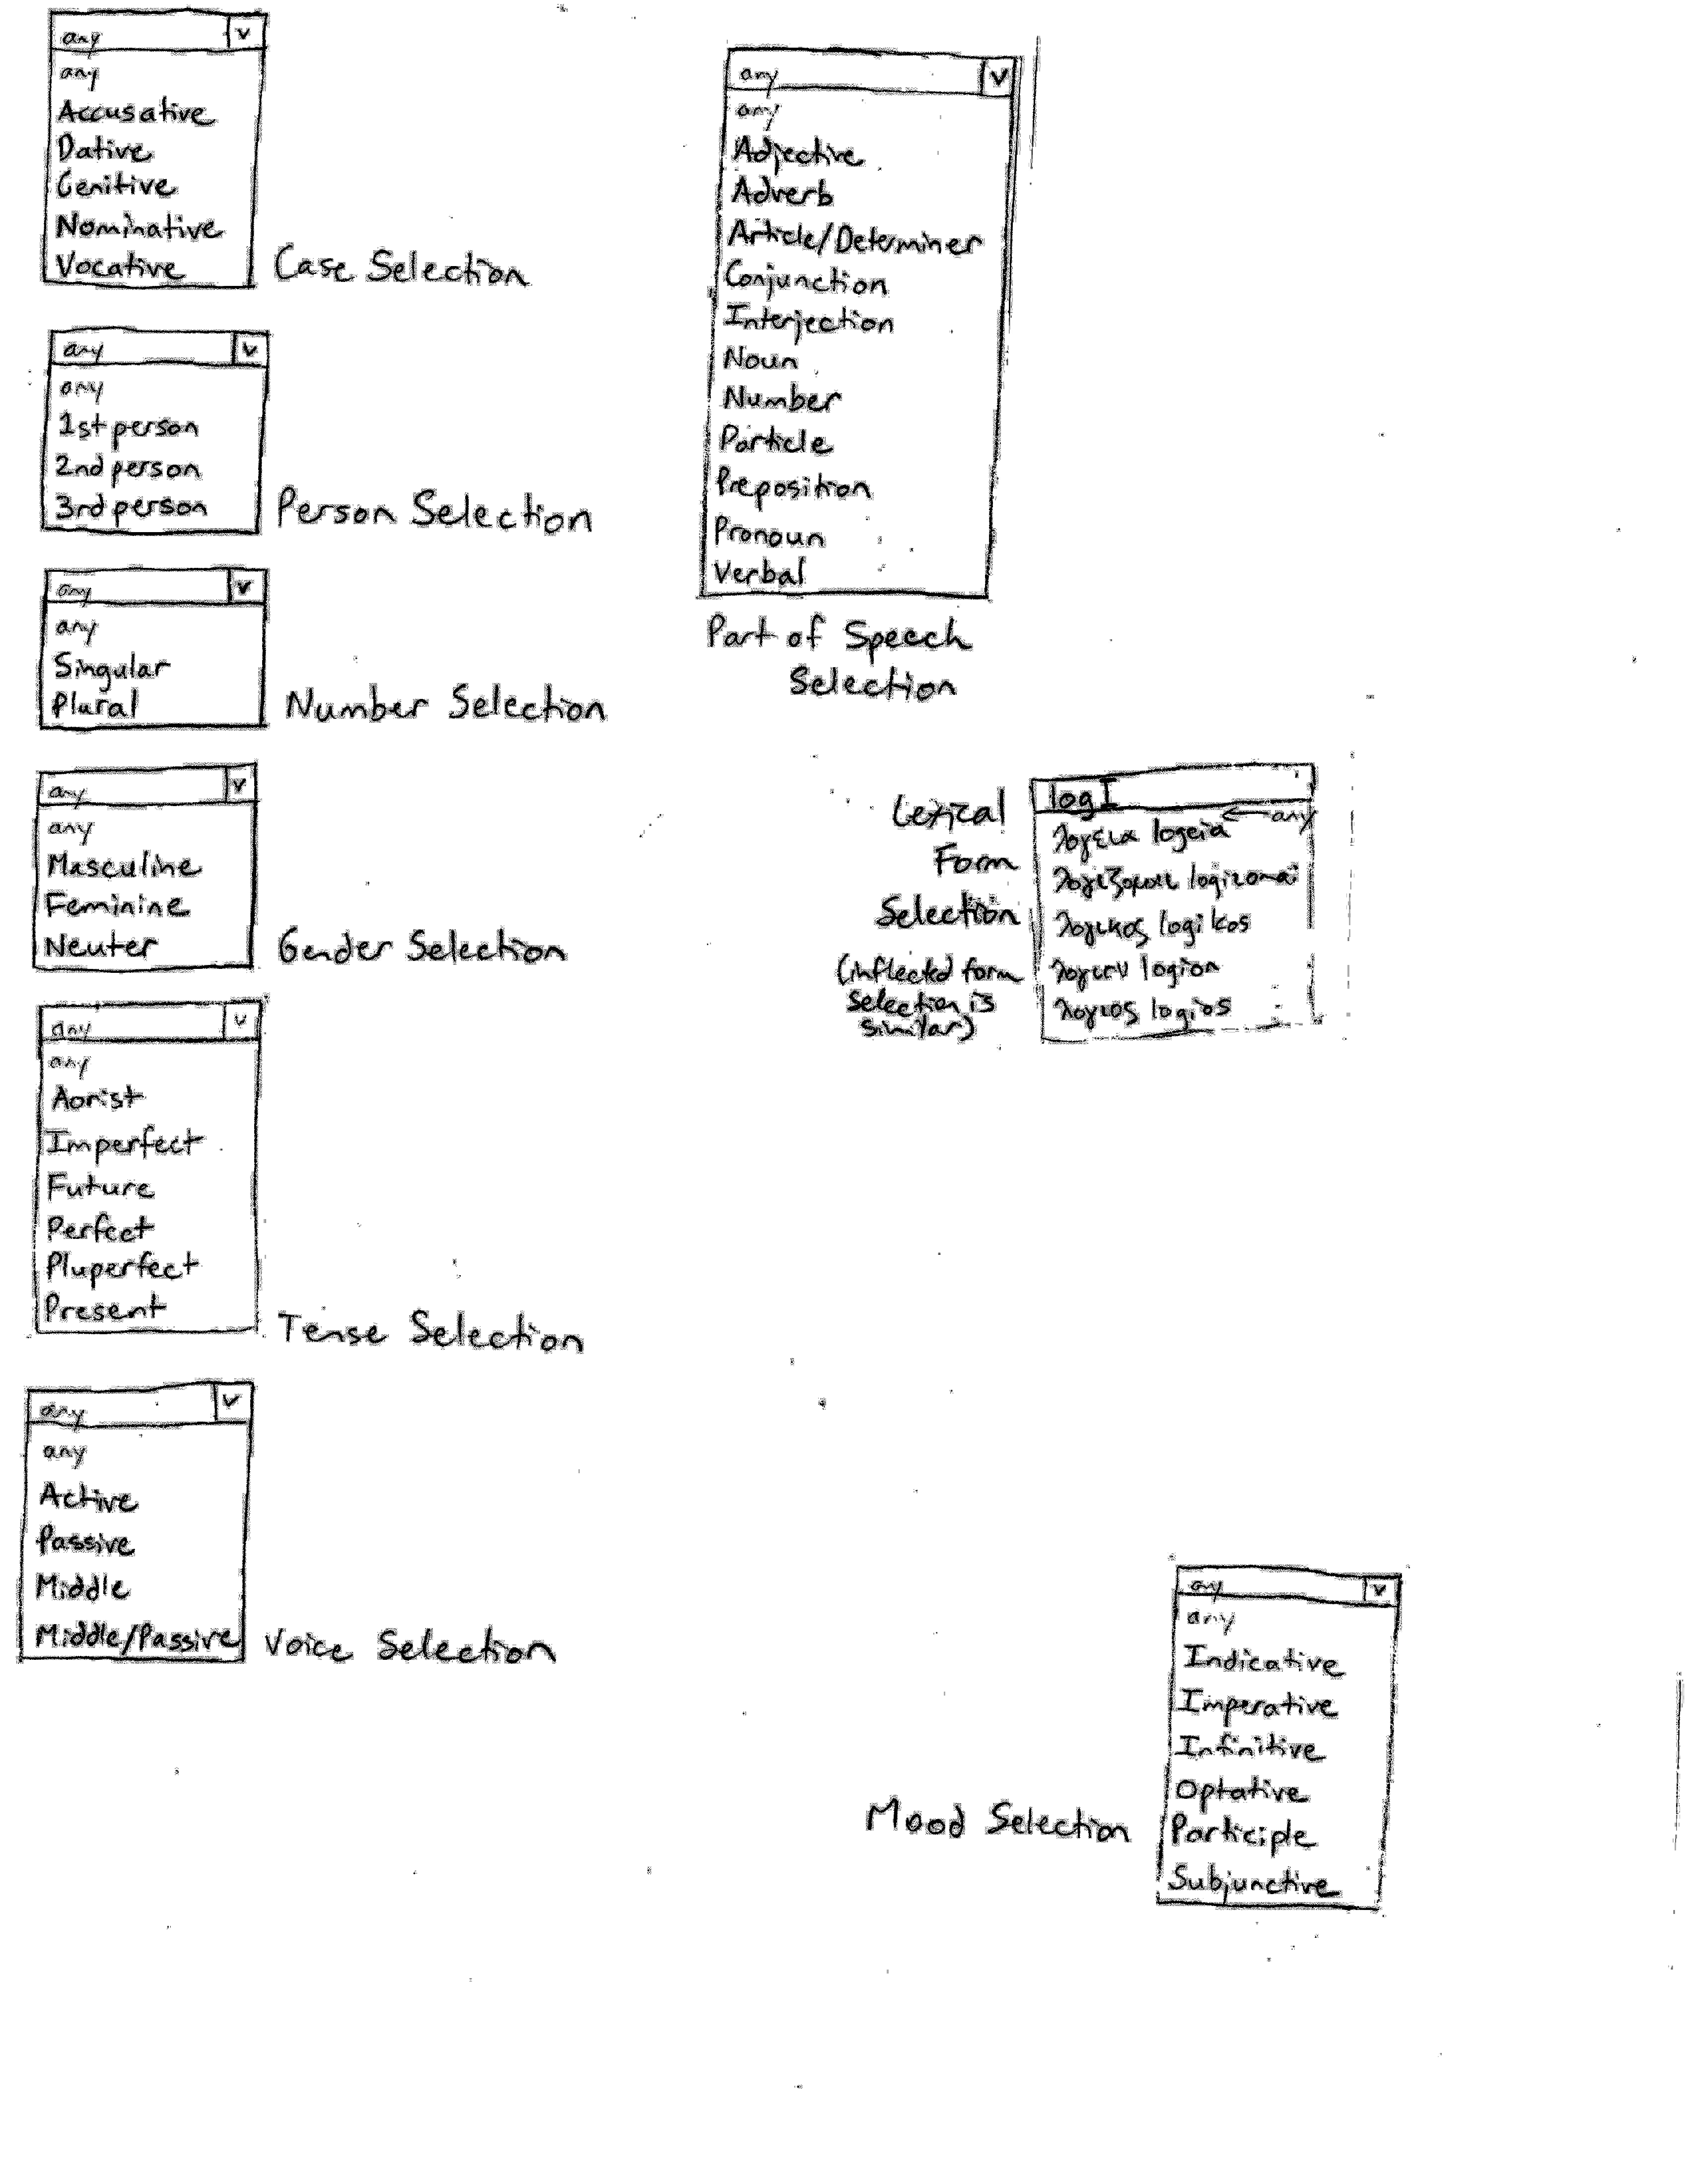 any v
any
Accusative
Dative
Genitive
Nominative
Vocative
Case Selection
any v
any
1st person
2nd person
3rd person
Person Selection
any v
any
Singular
Plural
Number Selection
any v
any
Masculine
Feminine
Neuter
Gender Selection
any v
any
Aorist
Imperfect
Future
Perfect
Pluperfect
Present
Tense Selection
any v
any
Active
Passive
Middle
Middle/Passive
Voice Selection
any v
any
Adjective
Adverb
Article/Determiner
Conjunction
Interjection
Noun
Number
Particle
Preposition
Pronoun
Verbal
Part of Speech
Selection
Lexical
Form
Selection
(inflected form
selection is
similar)
log
← any
λογεια logeia
logizomai
λογικος logikos
logion
λογιος logios
Mood Selection
any v
any
Indicative
Imperative
Infinitive
Optative
Participle
Subjunctive